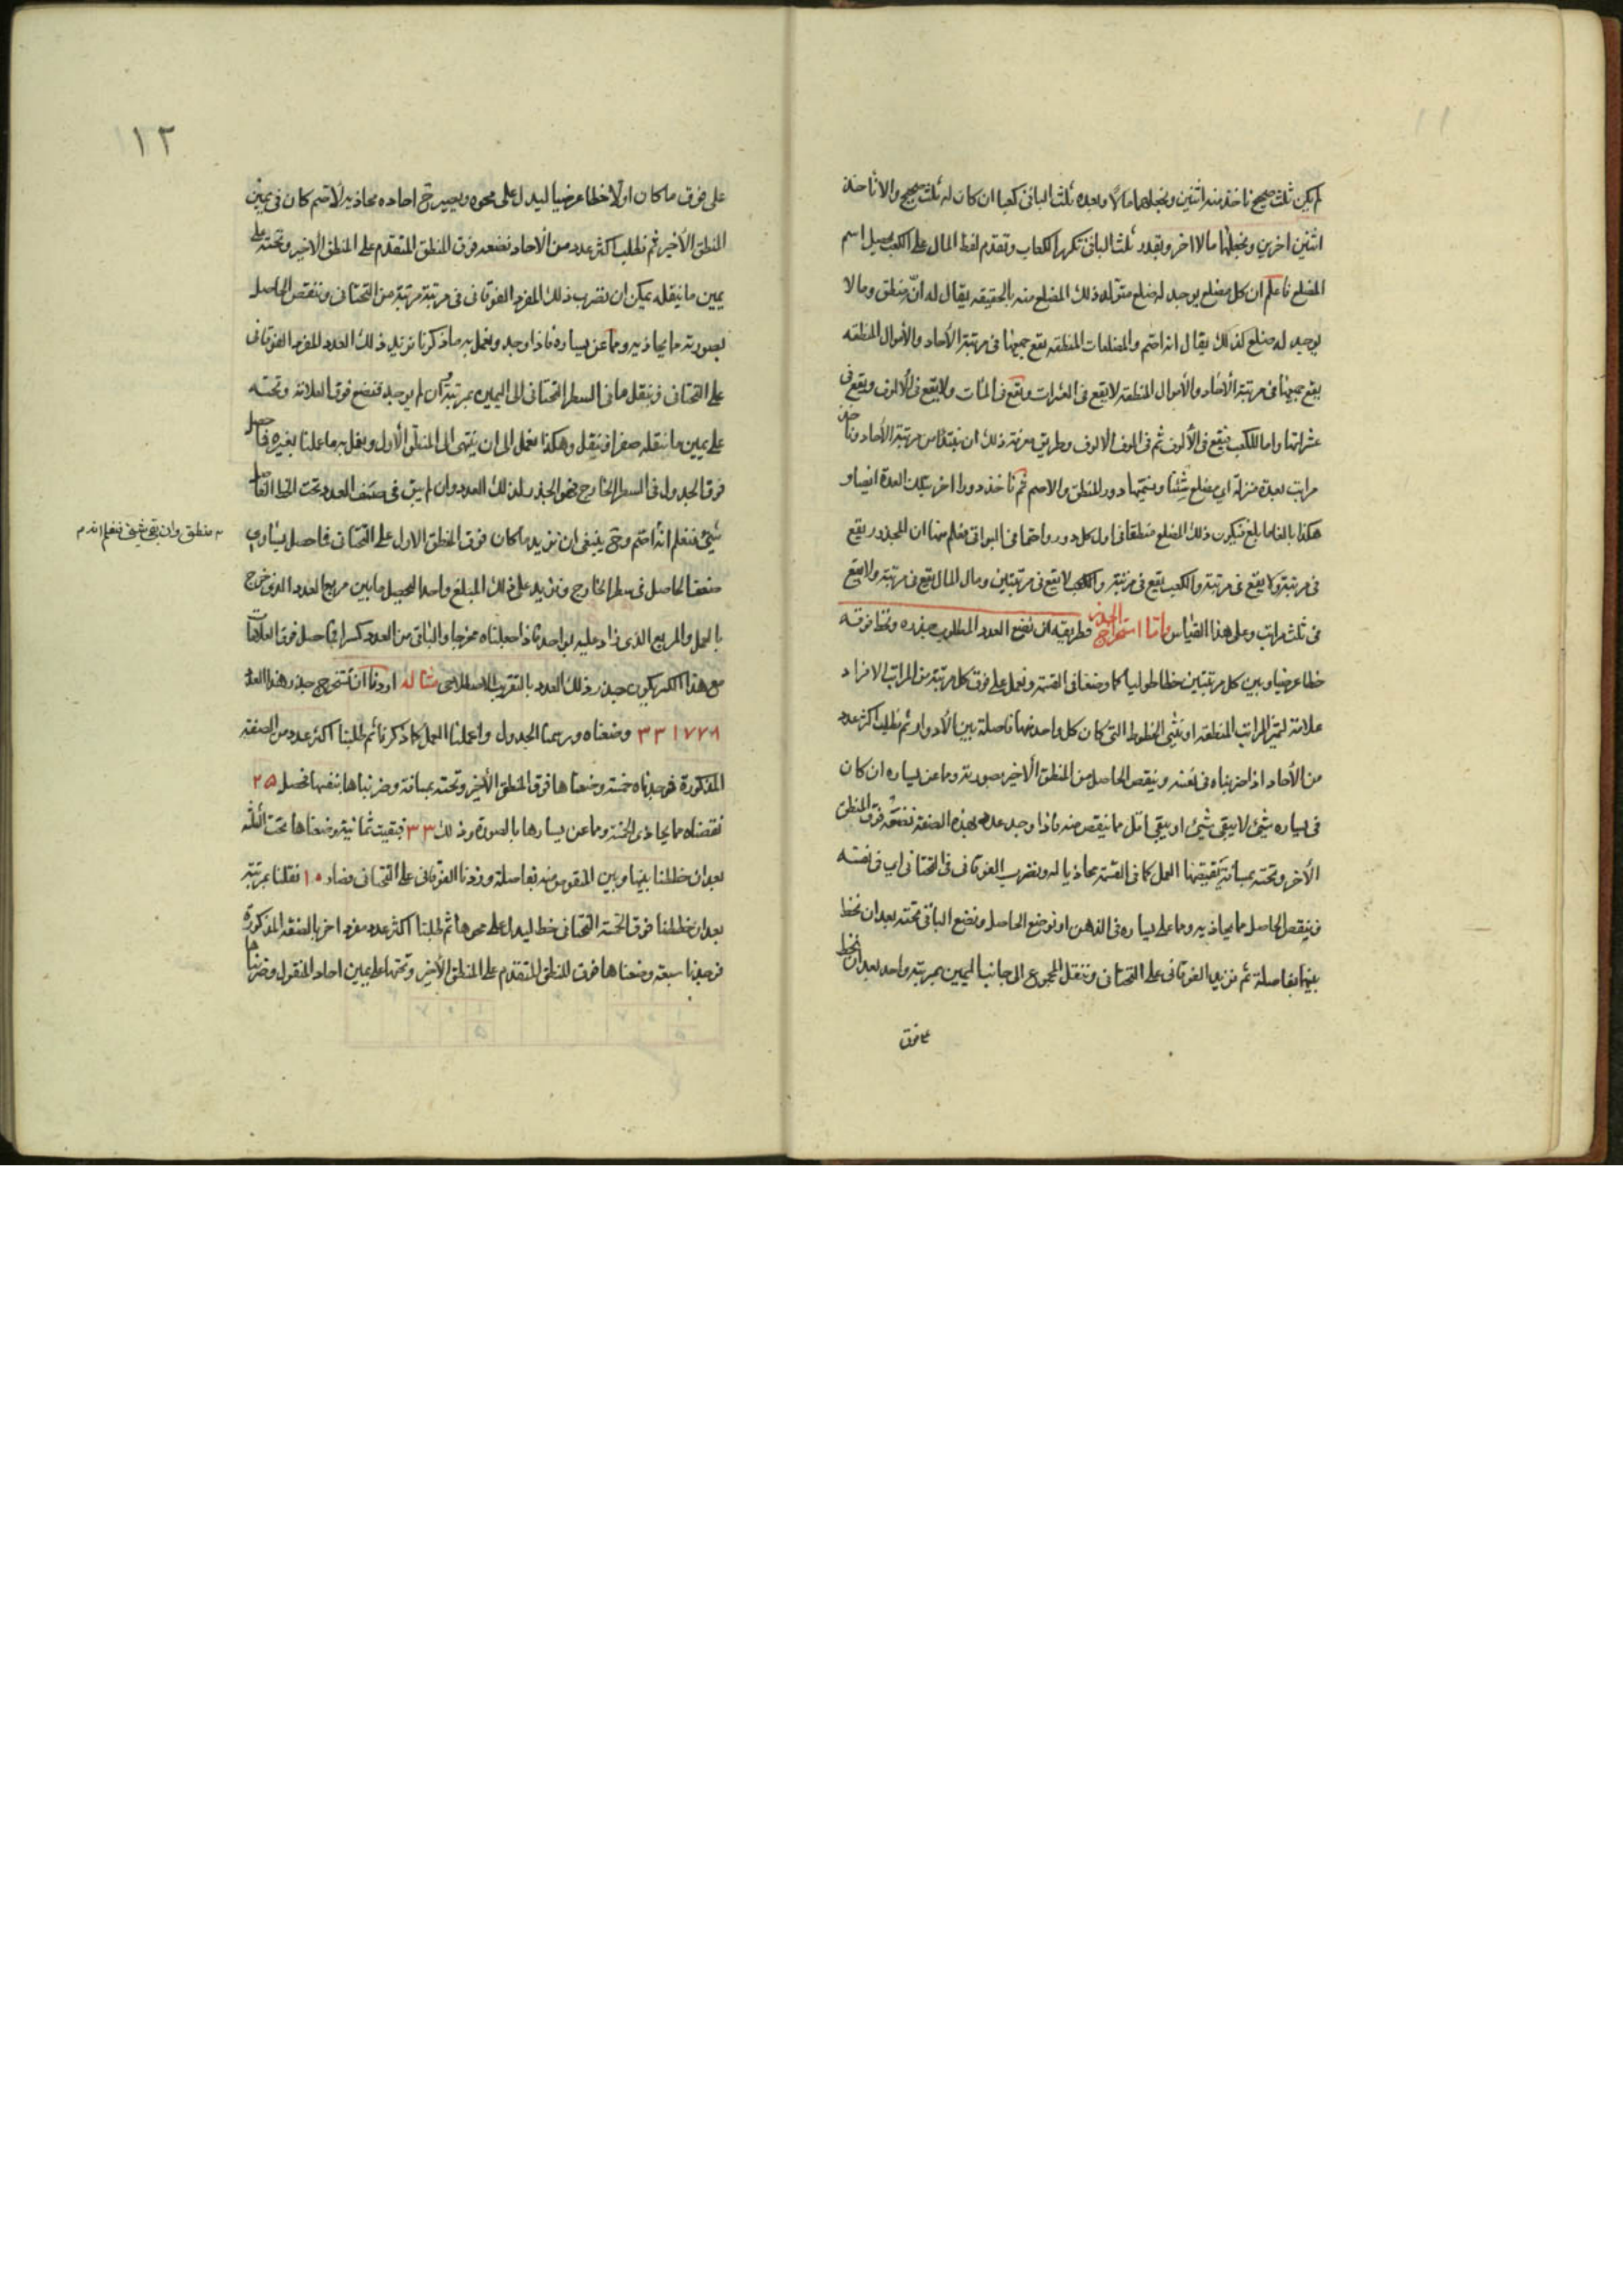 ١١
لم يكن ثلث صحيح ناخذ منه اثنين ونجعلهما مالا وبعده ثلث الباقى كعبا ان كان له ثلث صحيح والا ناخذ
اثنين اخرين ونجعلهما مالا اخر وبقدر ثلث الباقى نكرر الكعاب وتقدم لفظ المال على الكعب يحصل اسم
المضلع فاعلم ان كل مضلع يوجد له ضلع متولد ذلك المضلع منه بالحقيقه يقال له انه منطق وما لا
يوجد له ضلع كذلك يقال انه اصم والمضلعات المنطقه يقع جميعها فى مرتبة الآحاد والأموال المنطقه
يقع جميعها فى مرتبة الآحاد والأموال المنطقه لا يقع فى العشرات ويقع فى المآت ولا يقع فى الألوف ويقع فى
عشراتها واما الكعب فيقع فى الألوف ثم فى الوف الالوف وطريق معرفة ذلك ان نبتدأ من مرتبة الآحاد وناخذ
مراتب بعدة منزلة اي مضلع شئنا ونسميها دور المنطق والاصم ثم ناخذ دورا اخر بتلك العدة ايضا و
هكذا بالغا ما بلغ فيكون ذلك المضلع منطقا فى اول كل دور واصما فى البواقى فعلم منها ان المجذور يقع
فى مرتبة ولا يقع فى مرتبة والكعب يقع فى مرتبة ولا يقع فى مرتبتين ومال المال يقع فى مرتبة ولا يقع
فى ثلث مراتب وعلى هذا القياس واما استخراج الجذر فطريقه ان نضع العدد المطلوب جذره ونخط فوقه
خطا عرضيا وبين كل مرتبتين خطا طوليا كما وضعنا فى القسمة ونعمل على فوق كل مرتبة من المراتب الافراد
علامة لتميز المراتب المنطقه او نثنى الخطوط التى كان كل واحد منها فاصلة بين الأدوار ثم نطلب اكثر عدد
من الآحاد اذا ضربناه فى نفسه وينقص الحاصل من المنطق الأخير بصورته وما عن يساره ان كان
فى يساره شيئ لا يبقى شيئ او يبقى اقل مما ينقص منه فاذا وجد عدد بهذه الصفة نضعه فوق المنطق
الأخر وتحته بمسافة يقتضيها العمل كما فى القسمة محاذيا له ونضرب الفوقانى فى التحتانى اي فى نفسه
وينقص الحاصل مما يحاذيه وما على يساره فى الذهن او نوضع الحاصل ونضع الباقى تحته بعد ان نخط
بينهما بفاصلة ثم نزيد الفوقانى على التحتانى وننقل المجموع الى جانب اليمين بمرتبة واحد بعد ان نخط
على فوق
١٢
على فوق ما كان اولا خطا عرضيا ليدل على محوه ويصير ح احاده محاذيه لأصم كان فى يمين
المنطق الأخير ثم نطلب اكثر عدد من الآحاد نضعه فوق المنطق المتقدم على المنطق الأخير وتحته على
يمين ما ننقله يمكن ان نضرب ذلك المفرد الفوقانى فى مرتبة مرتبة من التحتانى وننقص الحاصل
بصورته مما يحاذيه ومما عن يساره فاذا وجد ويعمل به ما ذكرنا نزيد ذلك العدد المفرد الفوقانى
على التحتانى وننقل ما فى السطر التحتانى الى اليمين بمرتبة وان لم يوجد فنضع فوق العلامة وتحته
على يمين ما ننقله صفرا وننقل وهكذا نعمل الى ان ينتهى الى المنطق الأول ونعمل به ما عملنا بغيره فما حصل
فوق الجدول فى السطر الخارج فهو الجذر لذلك العدد وان لم يبق فى صف العدد تحت الخط الفاصل
شيئ فنعلم انه اصم وح ينبغى ان نزيد ما كان فوق المنطق الاول على التحتانى فما حصل يساوى
منطق وان بقى شيئ فنعلم انه
ضعف الحاصل فى سطر الخارج ونزيد على ذلك المبلغ واحدا ليحصل ما بين مربع العدد الذى خرج
بالعمل والمربع الذى زاد عليه بواحد فاذا جعلناه مخرجا والباقى من العدد كسرا فما حصل فوق العلامات
مع هذا الكسر يكون جذر ذلك العدد بالتقريب الاصطلاحى مثاله اردنا ان نستخرج جذر هذا العدد
٣٣١٧٧٨ وضعناه ورسمنا الجدول واعملنا العمل كما ذكرنا ثم طلبنا اكثر عدد من الصفة
المذكورة فوجدناه خمسة وضعناها فوق المنطق الأخير وتحته بمسافة وضربناها بنفسها فحصل ٢٥
نقصناه مما يحاذى الخمسة وما عن يسارها بالصورة وذلك ٣٣ فبقيت ثمانية وضعناها تحت الثلثه
بعد ان خططنا بينها وبين المنقوص منه بفاصلة وزدنا الفوقانى على التحتانى فصار ١٠ نقلنا بمرتبة
بعد ان خططنا فوق الخمسة التحتانى خط ليدل على محوها ثم طلبنا اكثر عدد مفرد اخر بالصفة المذكورة
فوجدنا سبعة وضعناها فوق المنطق المتقدم على المنطق الأخير وتحتها على يمين احاد المنقول وضربناها